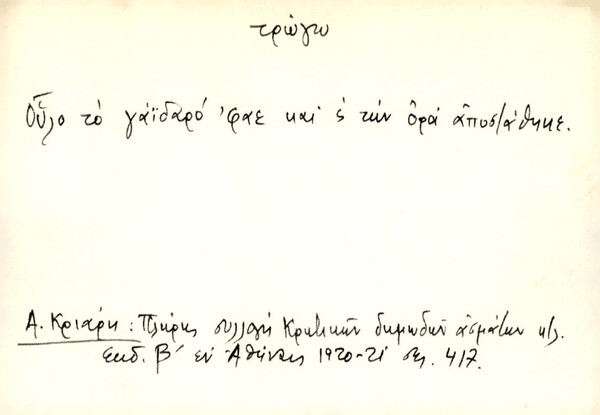 τρώγω
Οὗλο τὸ γάϊδαρό 'φαε καὶ ς τὴν ὀρά ἀποστάθηκε.
Α. Κριάρη: Πλήρης συλλογή Κρητικῶν δημωδῶν ἀσμάτων κτλ.
Εκδ. Β´ ἐν Ἀθήναις 1920-21 σελ. 417.